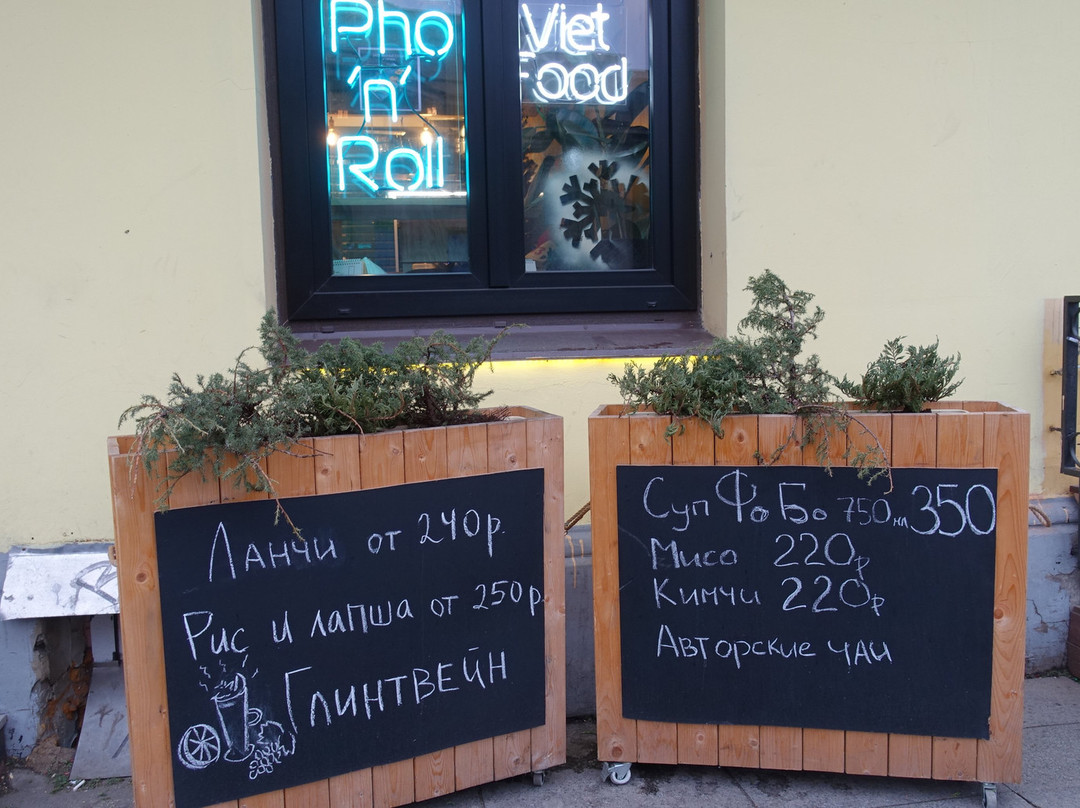 Pho
'n'
Roll
Viet
Food
Ланчи от 240р.
Рис и лапша от 250р.
Глинтвейн
Суп Фо Бо 750мл 350
Мисо 220р
Кимчи 220р
Авторские чаи